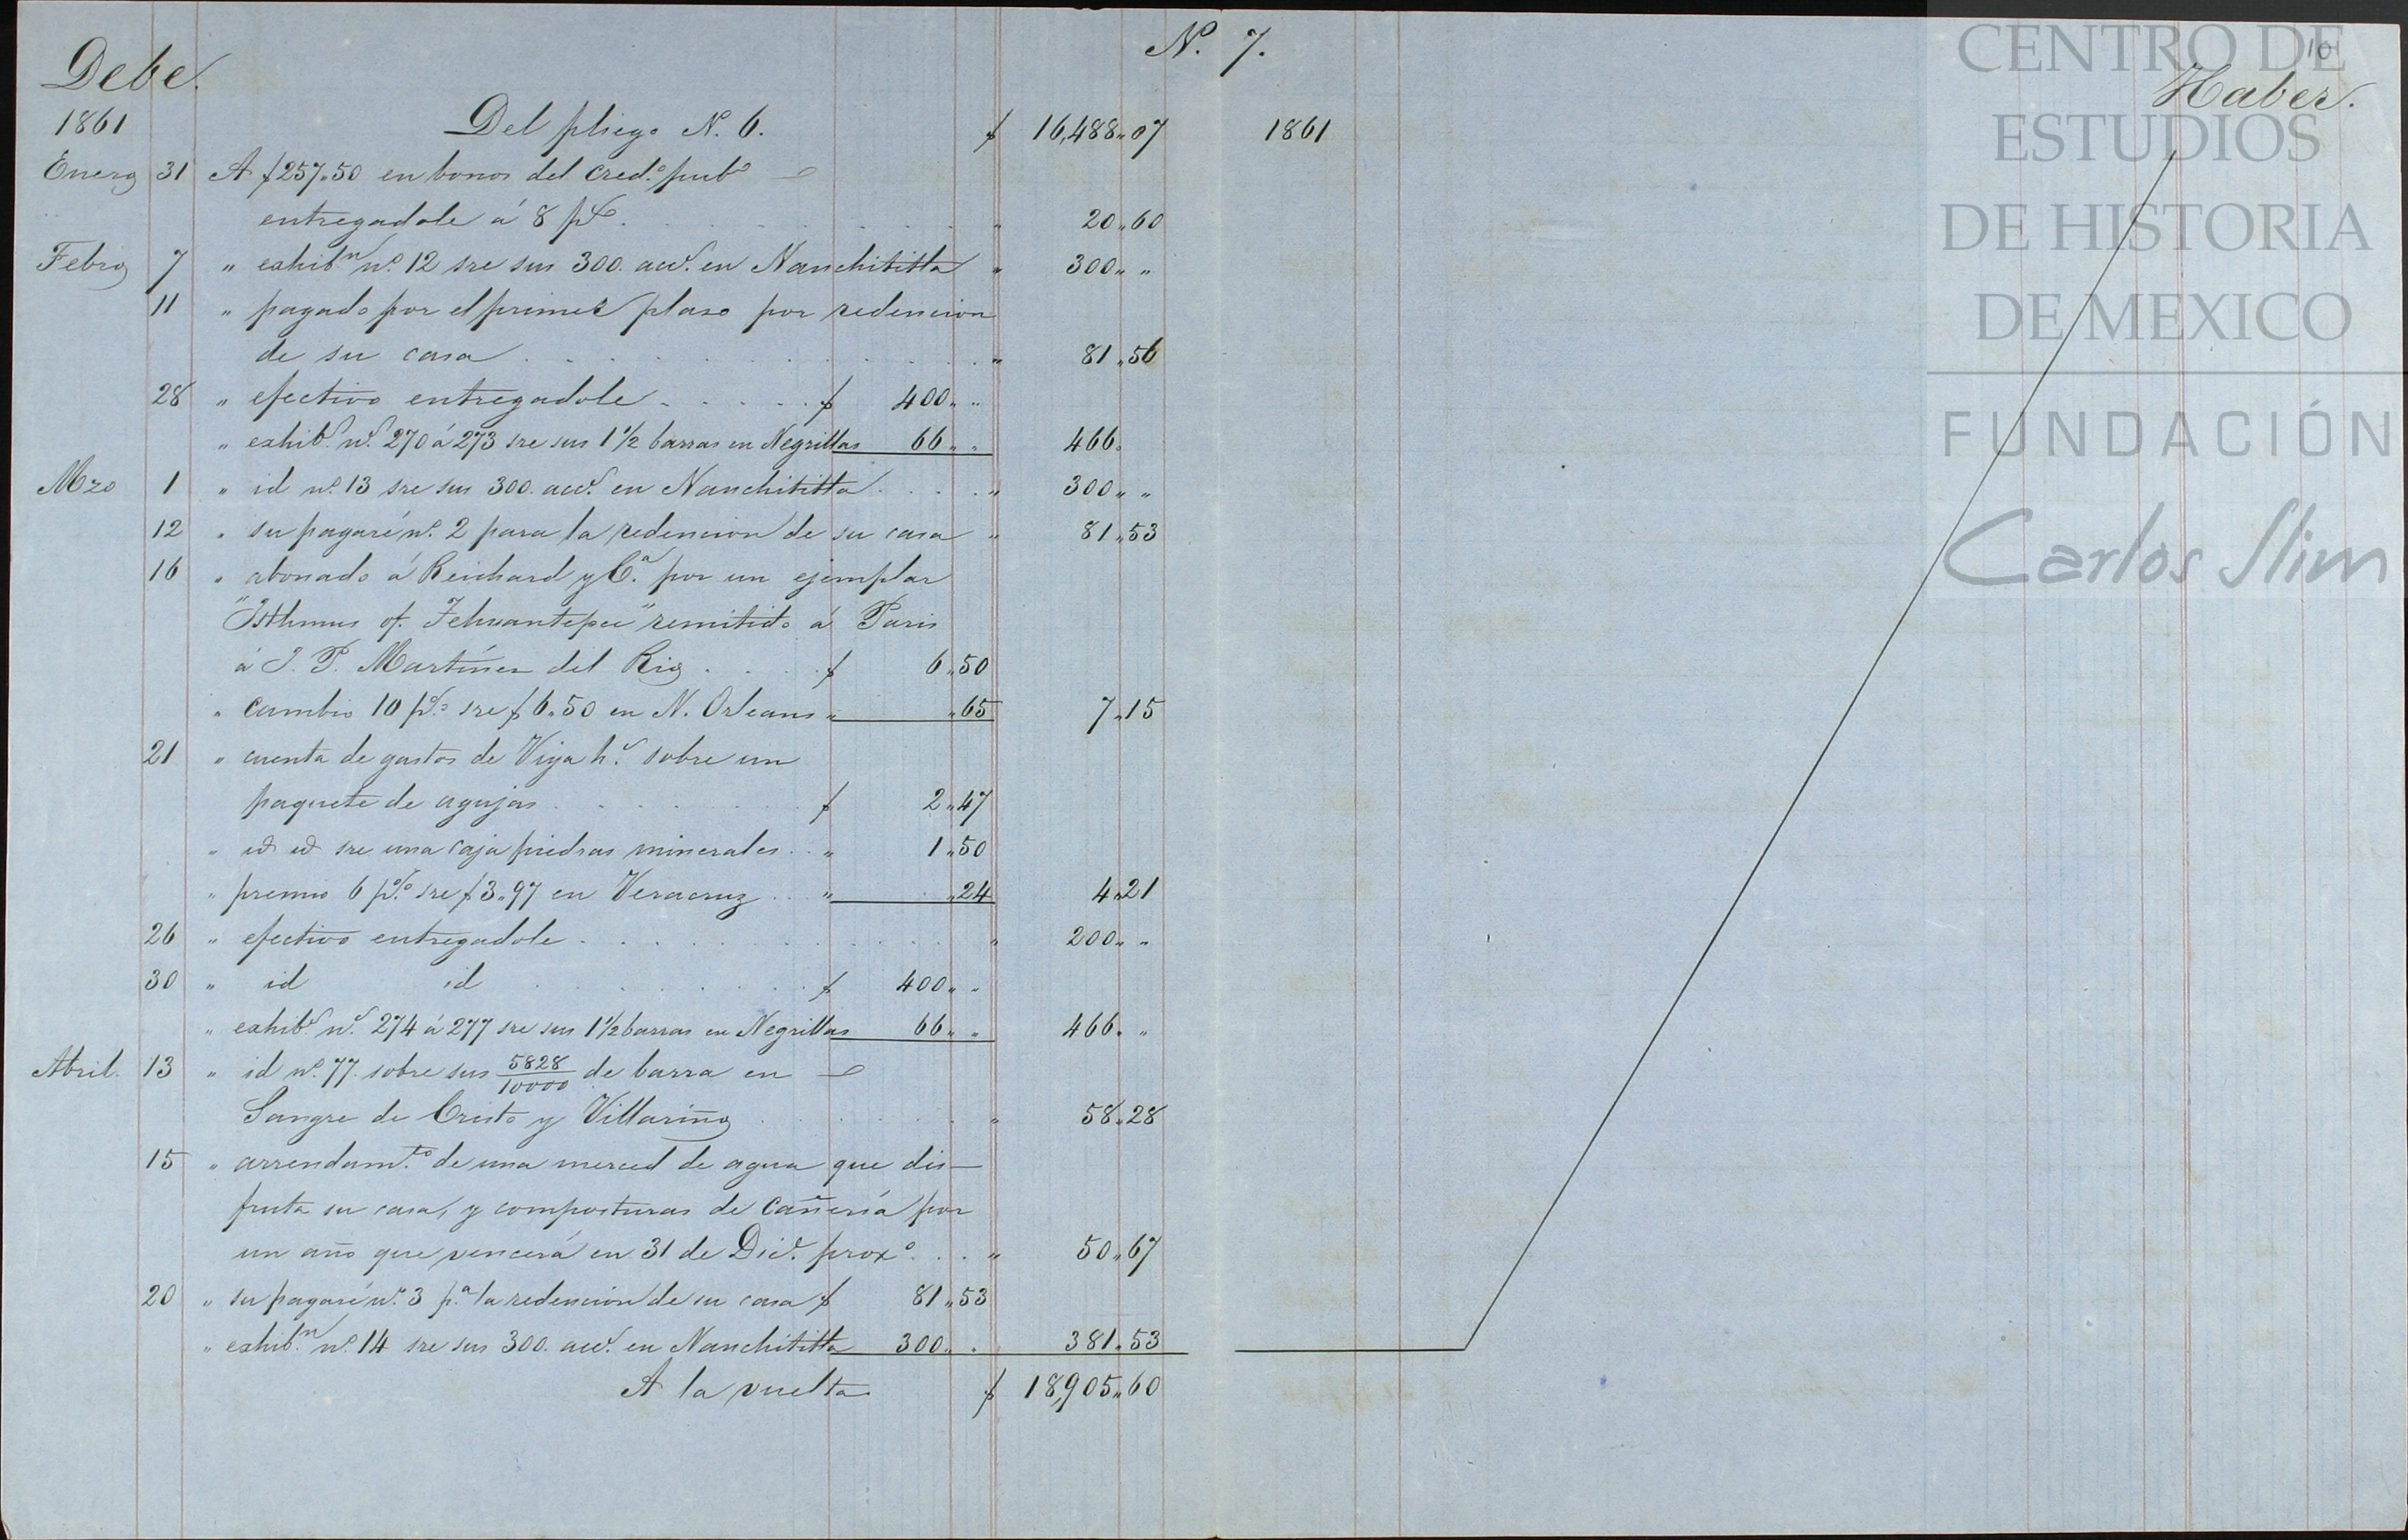 N.º 7.
10
Debe.
Haber.
1861
Del pliego N.º 6.
$ 16,488„07
1861
Enero 31 A $257„50 en bonos del Cred.º pub.º
entregadole á 8 p% . . . „ 20„60
Febro 7 „ exhib.n n.º 12 sre sus 300. acc.s en Nanchititla „ 300„ „
11 „ pagado por el primer plaso por redencion
de su casa . . . „ 81„56
28 „ efectivo entregadole . . . $ 400„ „
„ exhib.s n.s 270 á 273 sre sus 1 1/2 barras en Negrillas 66„ „ 466„
Mzo 1 „ id n.º 13 sre sus 300. acc.s en Nanchititla . . . „ 300„ „
12 „ su pagaré n.º 2 para la redencion de su casa „ 81„53
16 „ abonado á Reichard y C.ª por un ejemplar
"Isthmus of. Tehuantepec" remitido á Paris
á J. P. Martínez del Rio . . . $ 6„50
„ cambio 10 p.% sre $6„50 en N. Orleans „ „65 7„15
21 „ cuenta de gastos de Viya h.s sobre un
paquete de agujas . . . $ 2„47
„ id id sre una caja piedras minerales . . „ 1„50
„ premio 6 p.% sre $3„97 en Veracruz . . „ „24 4„21
26 „ efectivo entregadole . . . „ 200„ „
30 „ id id . . . $ 400„ „
„ exhib.s n.s 274 á 277 sre sus 1 1/2 barras en Negrillas 66„ „ 466„ „
Abril. 13 „ id n.º 77. sobre sus 5828/10000 de barra en
Sangre de Cristo y Villariño . . . „ 58„28
15 „ arrendam.to de una merced de agua que dis-
fruta su casa, y composturas de cañería por
un año que vencerá en 31 de Dic.e prox.º . . . „ 50„67
20 „ su pagaré n.º 3 p.ª la redencion de su casa $ 81„53
„ exhib.n n.º 14 sre sus 300. acc.s en Nanchititla 300„ „ 381„53
A la vuelta $ 18,905„60
CENTRO DE
ESTUDIOS
DE HISTORIA
DE MEXICO
FUNDACIÓN
Carlos Slim